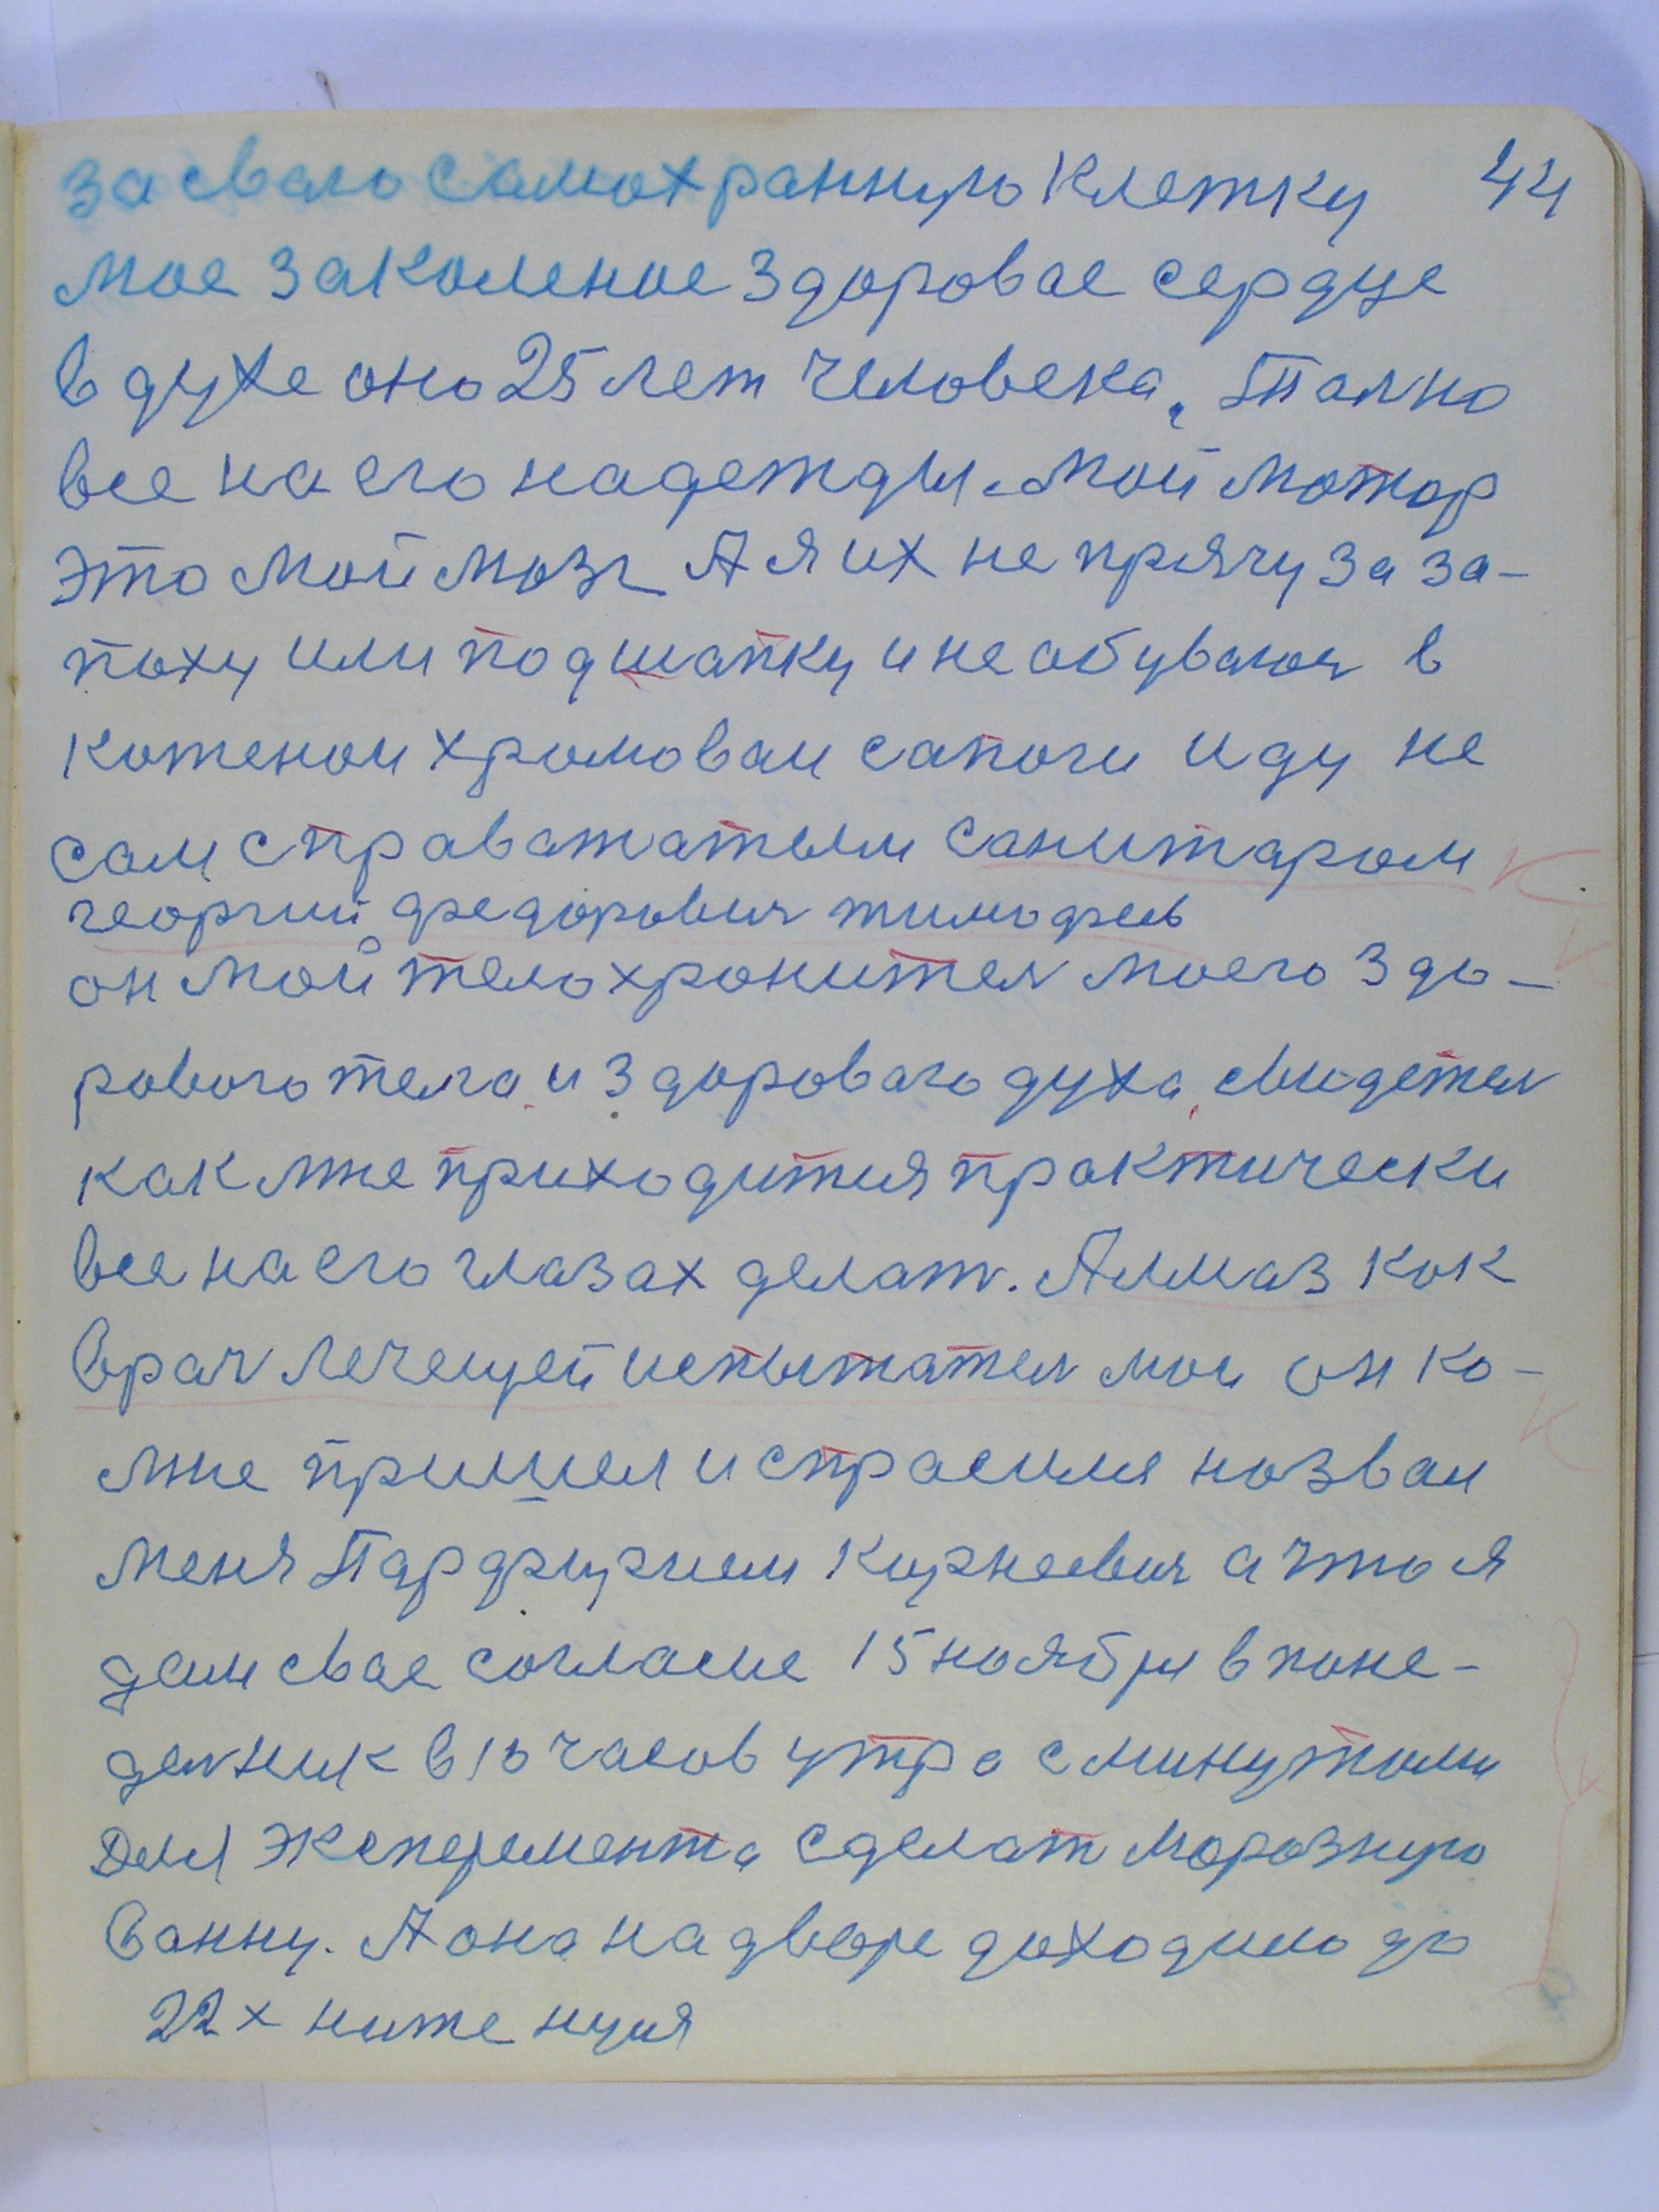 за сваю самохранную клетку 44
мое заколеное здоровае сердце
в духе оно 25 лет человека, Пално
все на его надежды. Мой мотор
это мой мозг А я их не прячу за за-
поху или под шапку и не обуваюя в
коженои хромоваи сапоги иду не
сам с праважатым санитаром
георгий федоровия тимофеев
он мой телохронител моего здо-
рового тела, и здороваго духа, свидетел
как мне приходится практически
все на его глазах делат. Алмаз как
врач лечещей испытател мои он ко-
мне пришел и спрасился назваи
меня Парфирием Корнеевич а что я
даи свае согласие 15 ноября в поне-
делник в 10 часов утра с минутами
Для эксперемента сделат морозную
ванну. А она на дворе доходило до
22х ниже нуля